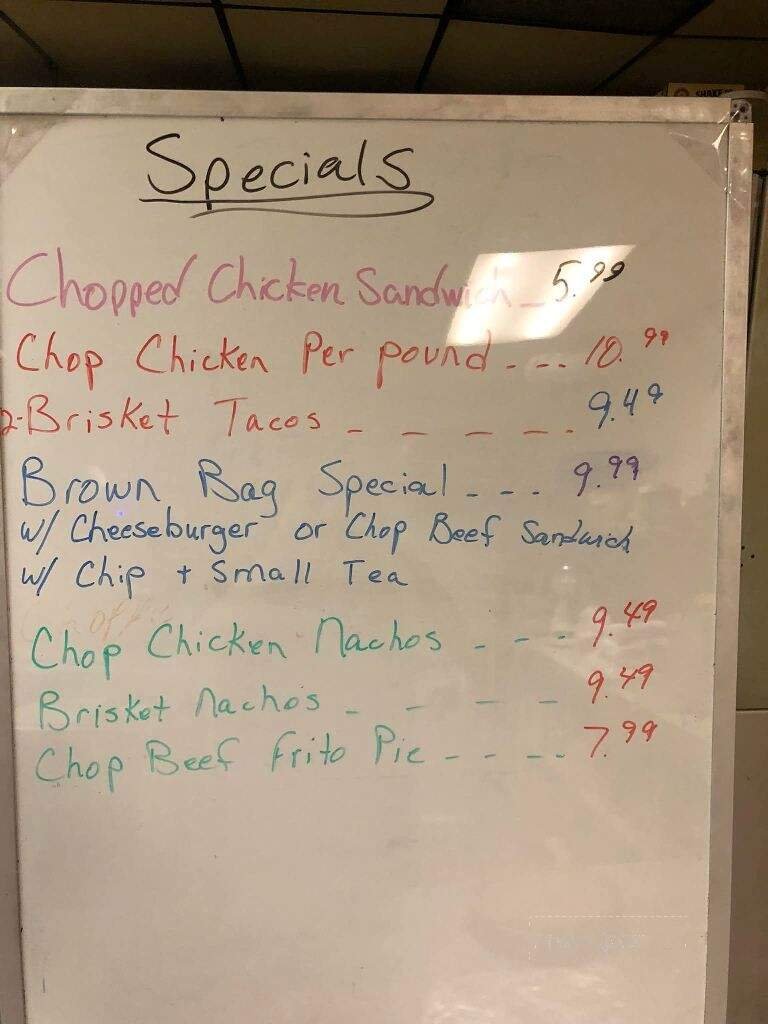 Specials
Chopped Chicken Sandwich - 5.99
Chop Chicken Per pound - - - 10.99
2-Brisket Tacos - - - - - 9.49
Brown Bag Special - - - 9.99
w/ Cheeseburger or Chop Beef Sandwich
w/ Chip + Small Tea
Chop Chicken Nachos - - - 9.49
Brisket Nachos - - - - 9.49
Chop Beef Frito Pie - - - - 7.99